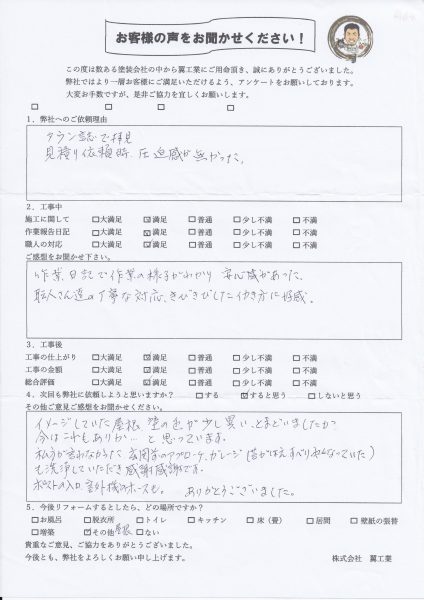 お客様の声をお聞かせください！
この度は数ある塗装会社の中から翼工業にご用命頂き、誠にありがとうございました。
弊社ではより一層お客様にご満足いただけるよう、アンケートをお願いしております。
大変お手数ですが、是非ご協力を宜しくお願いします。
□ □ □ □
１．弊社へのご依頼理由
タウン誌で拝見
見積り依頼時、圧迫感が無かった。
２．工事中
施工に関して □大満足 ☑満足 □普通 □少し不満 □不満
作業報告日記 □大満足 ☑満足 □普通 □少し不満 □不満
職人の対応 □大満足 ☑満足 □普通 □少し不満 □不満
ご感想をお聞かせ下さい。
作業日記で作業の様子がわかり 安心感があった。
職人さん達の丁寧な対応、きびきびした働き方に好感。
３．工事後
工事の仕上がり □大満足 ☑満足 □普通 □少し不満 □不満
工事の金額 □大満足 ☑満足 □普通 □少し不満 □不満
総合評価 □大満足 ☑満足 □普通 □少し不満 □不満
４．次回も弊社に依頼しようと思いますか？ □する ☑すると思う □しないと思う
その他ご意見ご感想をお聞かせください。
イメージしていた屋根、壁の色が少し異い、とまどいましたが
今はこれもありか… と思っています。
私共が言わなくても 玄関等のアプローチ、ガレージ(苔がはえすべりやすくなっていた)
も洗浄していただき感謝感謝です。
ポストの入口 室外機のホースも。 ありがとうございました。
５．今後リフォームするとしたら、どの場所ですか？
□お風呂 □脱衣所 □トイレ □キッチン □床（畳） □居間 □壁紙の張替
□増築 ☑その他 屋根 □ない
貴重なご意見、ご協力をありがとうございました。
今後とも、弊社をよろしくお願い申し上げます。 株式会社 翼工業